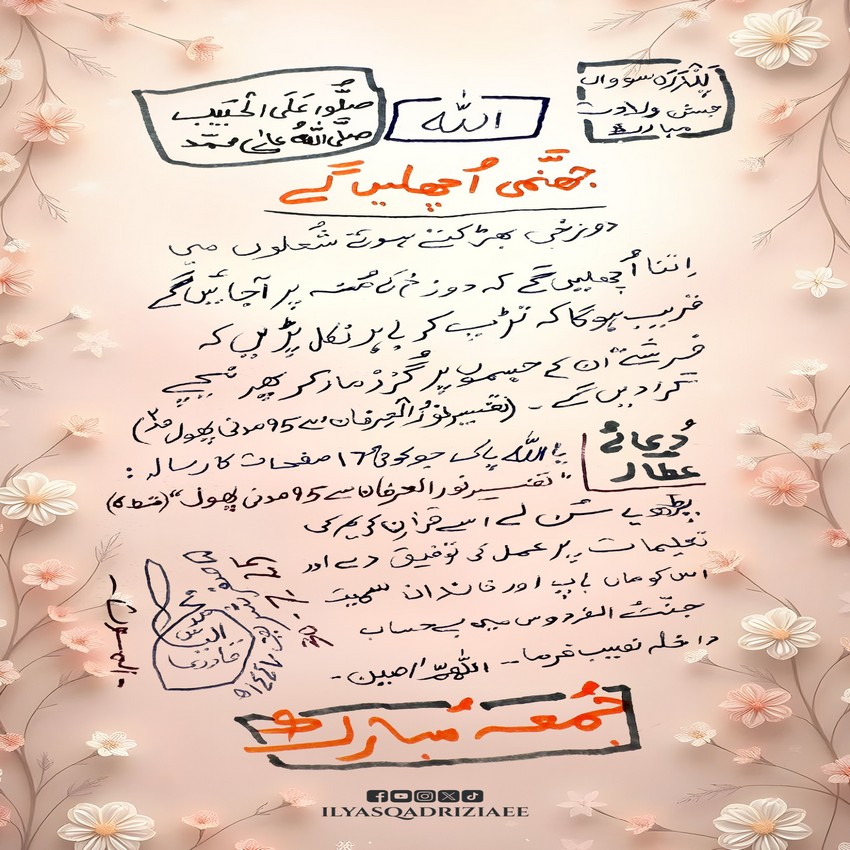 صَلُّوا عَلَی الْحَبِیْب
صلی اللہُ علیٰ محمّد
اللہ
پندرہ سو واں
جشن ولادت
مبارک
جہنَّمی اُچھلیں گے
دوزخی بھڑکتے ہوئے شُعلوں میں
اِتنا اُچھلیں گے کہ دوزخ کے مُنہ پر آجائیں گے
قریب ہوگا کہ تڑپ کر باہر نکل پڑیں کہ
فرشتے ان کے جسموں پر گُرْز مار کر پھر نیچے
گرادیں گے ۔ (تفسیر نورُ العِرفان سے 95 مدنی پھول
دُعائے
عطار
یا اللہ پاک جو کوئی 17 صفحات کا رسالہ :
"تفسیر نور العرفان سے 95 مدنی پھول" (قسط 6)
پڑھ یا سُن لے اسے قراٰنِ کریم کی
تعلیمات پر عمل کی توفیق دے اور
اس کو ماں باپ اور خاندان سمیت
جنّتُ الفردوس میں بے حساب
داخلہ نصیب فرما ۔۔ اللھمّ اٰمین ۔
محمد
الیاس
قادری
جُمعہ مُبارک
ILYASQADRIZIAEE